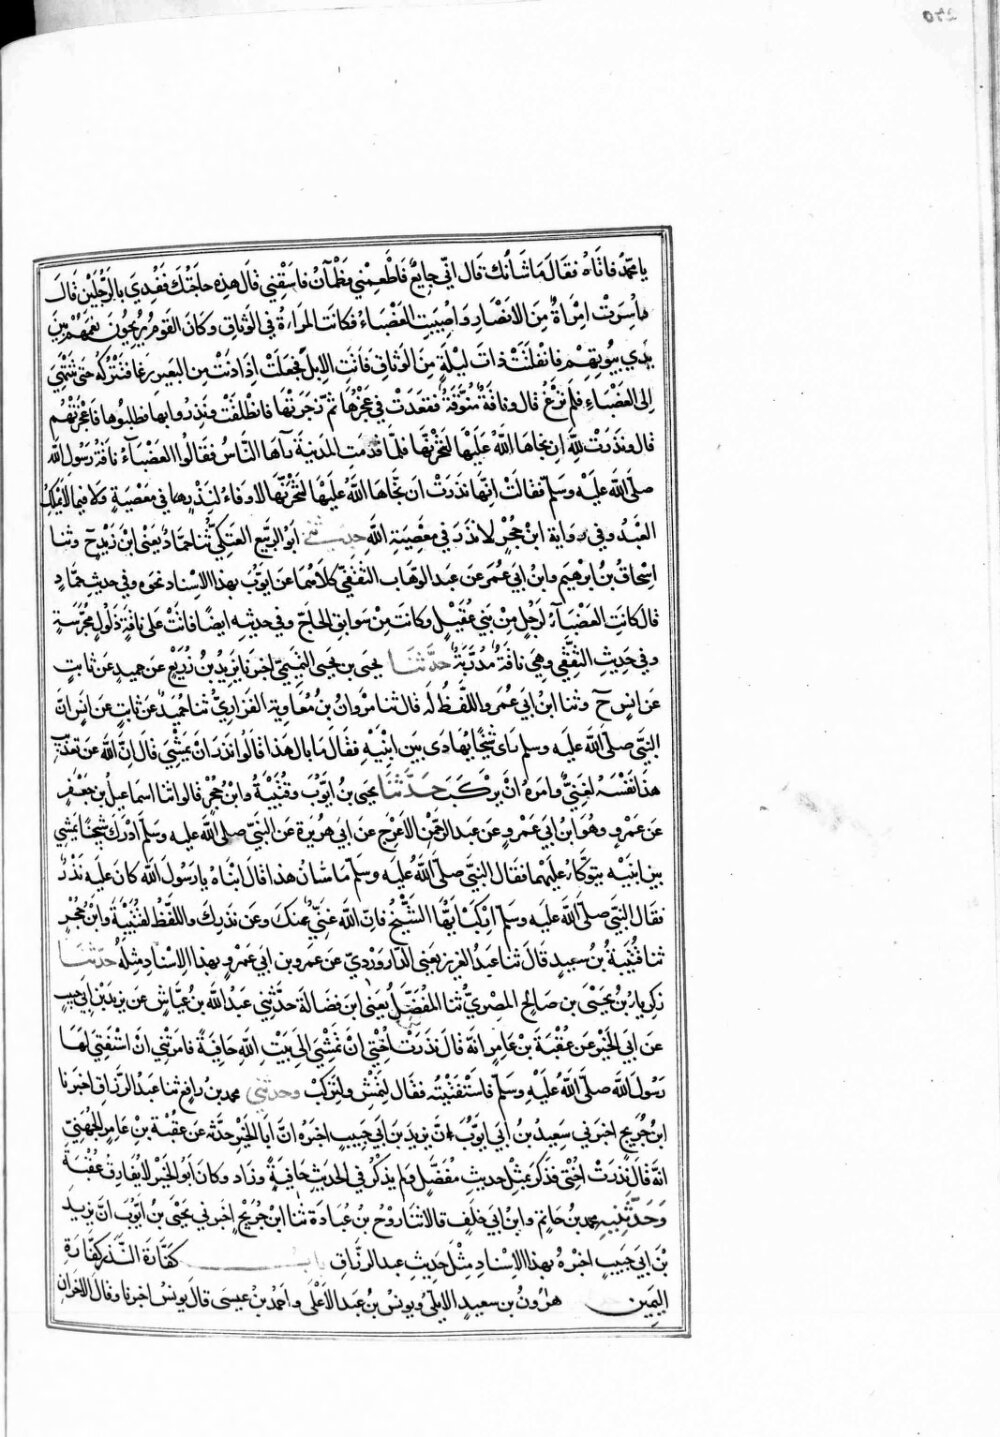 يا محمد فاتاه فقال ما شأنك قال اني جايع فاطعمني وظمآن فاسقني قال هذه حاجتك ففدي بالرجلين قال
واسرت امراة من الانصار واصيبت العضباء فكانت المراة في الوثاق وكان القوم يريحون نعمهم بين
يدي بيوتهم فانفلتت ذات ليلة من الوثاق فاتت الابل فجعلت اذا دنت من البعير رغا فتتركه حتى تنتهي
الى العضباء فلم ترغ قال وناقة منوقة فقعدت في عجزها ثم زجرتها فانطلقت ونذروا بها فطلبوها فاعجزتهم
قال ونذرت لله ان نجاها الله عليها لتنحرنها فلما قدمت المدينة رآها الناس فقالوا العضبآء ناقة رسول الله
صلى الله عليه وسلم فقالت انها نذرت ان نجاها الله عليها لتنحرنها لا وفاء لنذر في معصية ولا فيما لا يملك
العبد وفي رواية ابن حجر لا نذر في معصية الله حدثني ابو الربيع العتكي ثنا حماد يعنى ابن زيد ح وثنا
اسحاق بن ابرهيم وابن ابي عمر عن عبد الوهاب الثقفي كلاهما عن ايوب بهذا الاسناد نحوه وفي حديث حماد
قال كانت العضبآء لرجل من بني عقيل وكانت من سوابق الحاج وفي حديثه ايضا فاتت على ناقة ذلول مجرسة
وفي حديث الثقفي وهي ناقة مدربة حدثنا يحيى بن يحيى التميمي اخبرنا يزيد بن زريع عن حميد عن ثابت
عن انس ح وثنا ابن ابي عمر واللفظ له قال ثنا مروان بن معاوية الفزاري ثنا حميد عن ثابت عن انس ان
النبي صلى الله عليه وسلم راى شيخا يهادى بين ابنيه فقال ما بال هذا قالوا نذر ان يمشي قال ان الله عن تعذيب
هذا نفسه لغني وامره ان يركب حدثنا يحيى بن ايوب وقتيبة وابن حجر قالوا ثنا اسماعيل بن جعفر
عن عمرو وهو ابن ابي عمرو عن عبد الرحمن الاعرج عن ابي هريرة عن النبي صلى الله عليه وسلم ادرك شيخا يمشي
بين ابنيه يتوكأ عليهما فقال النبي صلى الله عليه وسلم ما شان هذا قال ابناه يا رسول الله كان عليه نذر
فقال النبي صلى الله عليه وسلم اركب ايها الشيخ فان الله غني عنك وعن نذرك واللفظ لقتيبة وابن حجر
ثنا قتيبة بن سعيد قال ثنا عبد العزيز يعنى الدراوردي عن عمرو بن ابي عمرو بهذا الاسناد مثله حدثنا
زكريا بن يحيى بن صالح المصري ثنا المفضل يعنى ابن فضالة حدثني عبد الله بن عياش عن يزيد بن ابي حبيب
عن ابي الخير عن عقبة بن عامر انه قال نذرت اختي ان تمشي الى بيت الله حافية فامرتني ان استفتي لها
رسول الله صلى الله عليه وسلم فاستفتيته فقال لتمش ولتركب وحدثني محمد بن رافع ثنا عبد الرزاق اخبرنا
ابن جريج اخبرني سعيد بن ابي ايوب ان يزيد بن ابي حبيب اخبره ان ابا الخير حدثه عن عقبة بن عامر الجهني
انه قال نذرت اختي فذكر بمثل حديث مفضل ولم يذكر في الحديث حافية وزاد وكان ابو الخير لا يفارق عقبة
وحدثنيه محمد بن حاتم وابن ابي خلف قالا ثنا روح بن عبادة ثنا ابن جريج اخبرني يحيى بن ايوب ان يزيد
بن ابي حبيب اخبره بهذا الاسناد مثل حديث عبد الرزاق باب كفارة النذر كفارة
اليمين هرون بن سعيد الايلي ويونس بن عبد الاعلى واحمد بن عيسى قال يونس اخبرنا وقال الاخران